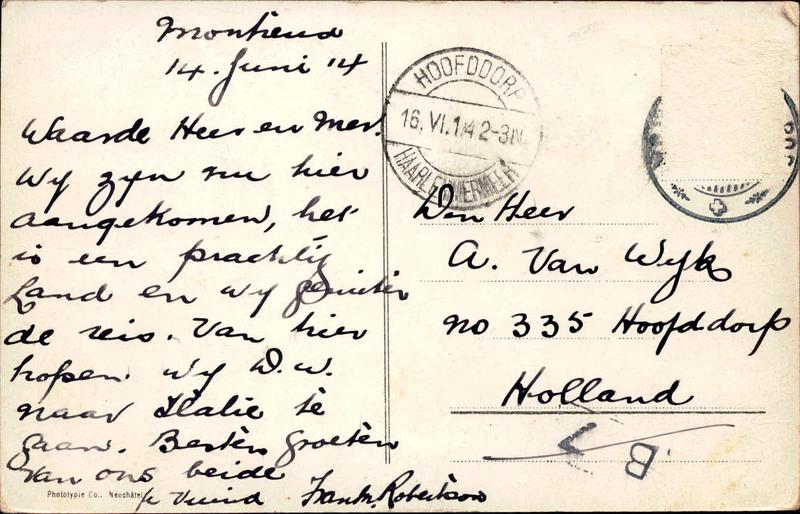 Montreux
14. Juni '14
Waarde Heer en Mev.
Wy zyn nu hier
aangekomen, het
is een prachtig
Land en wy genieten
de reis. Van hier
hopen wy D.W.
naar Italie te
gaan. Besten groeten
van ons beide
Uw Vriend Frank. Robertson
Phototypie Co., Neuchâtel
HOOFDDORP
16. VI.14 2-3N
HAARLEMMERMEER
Den Heer
A. Van Wyk
no 335 Hoofddorp
Holland
B